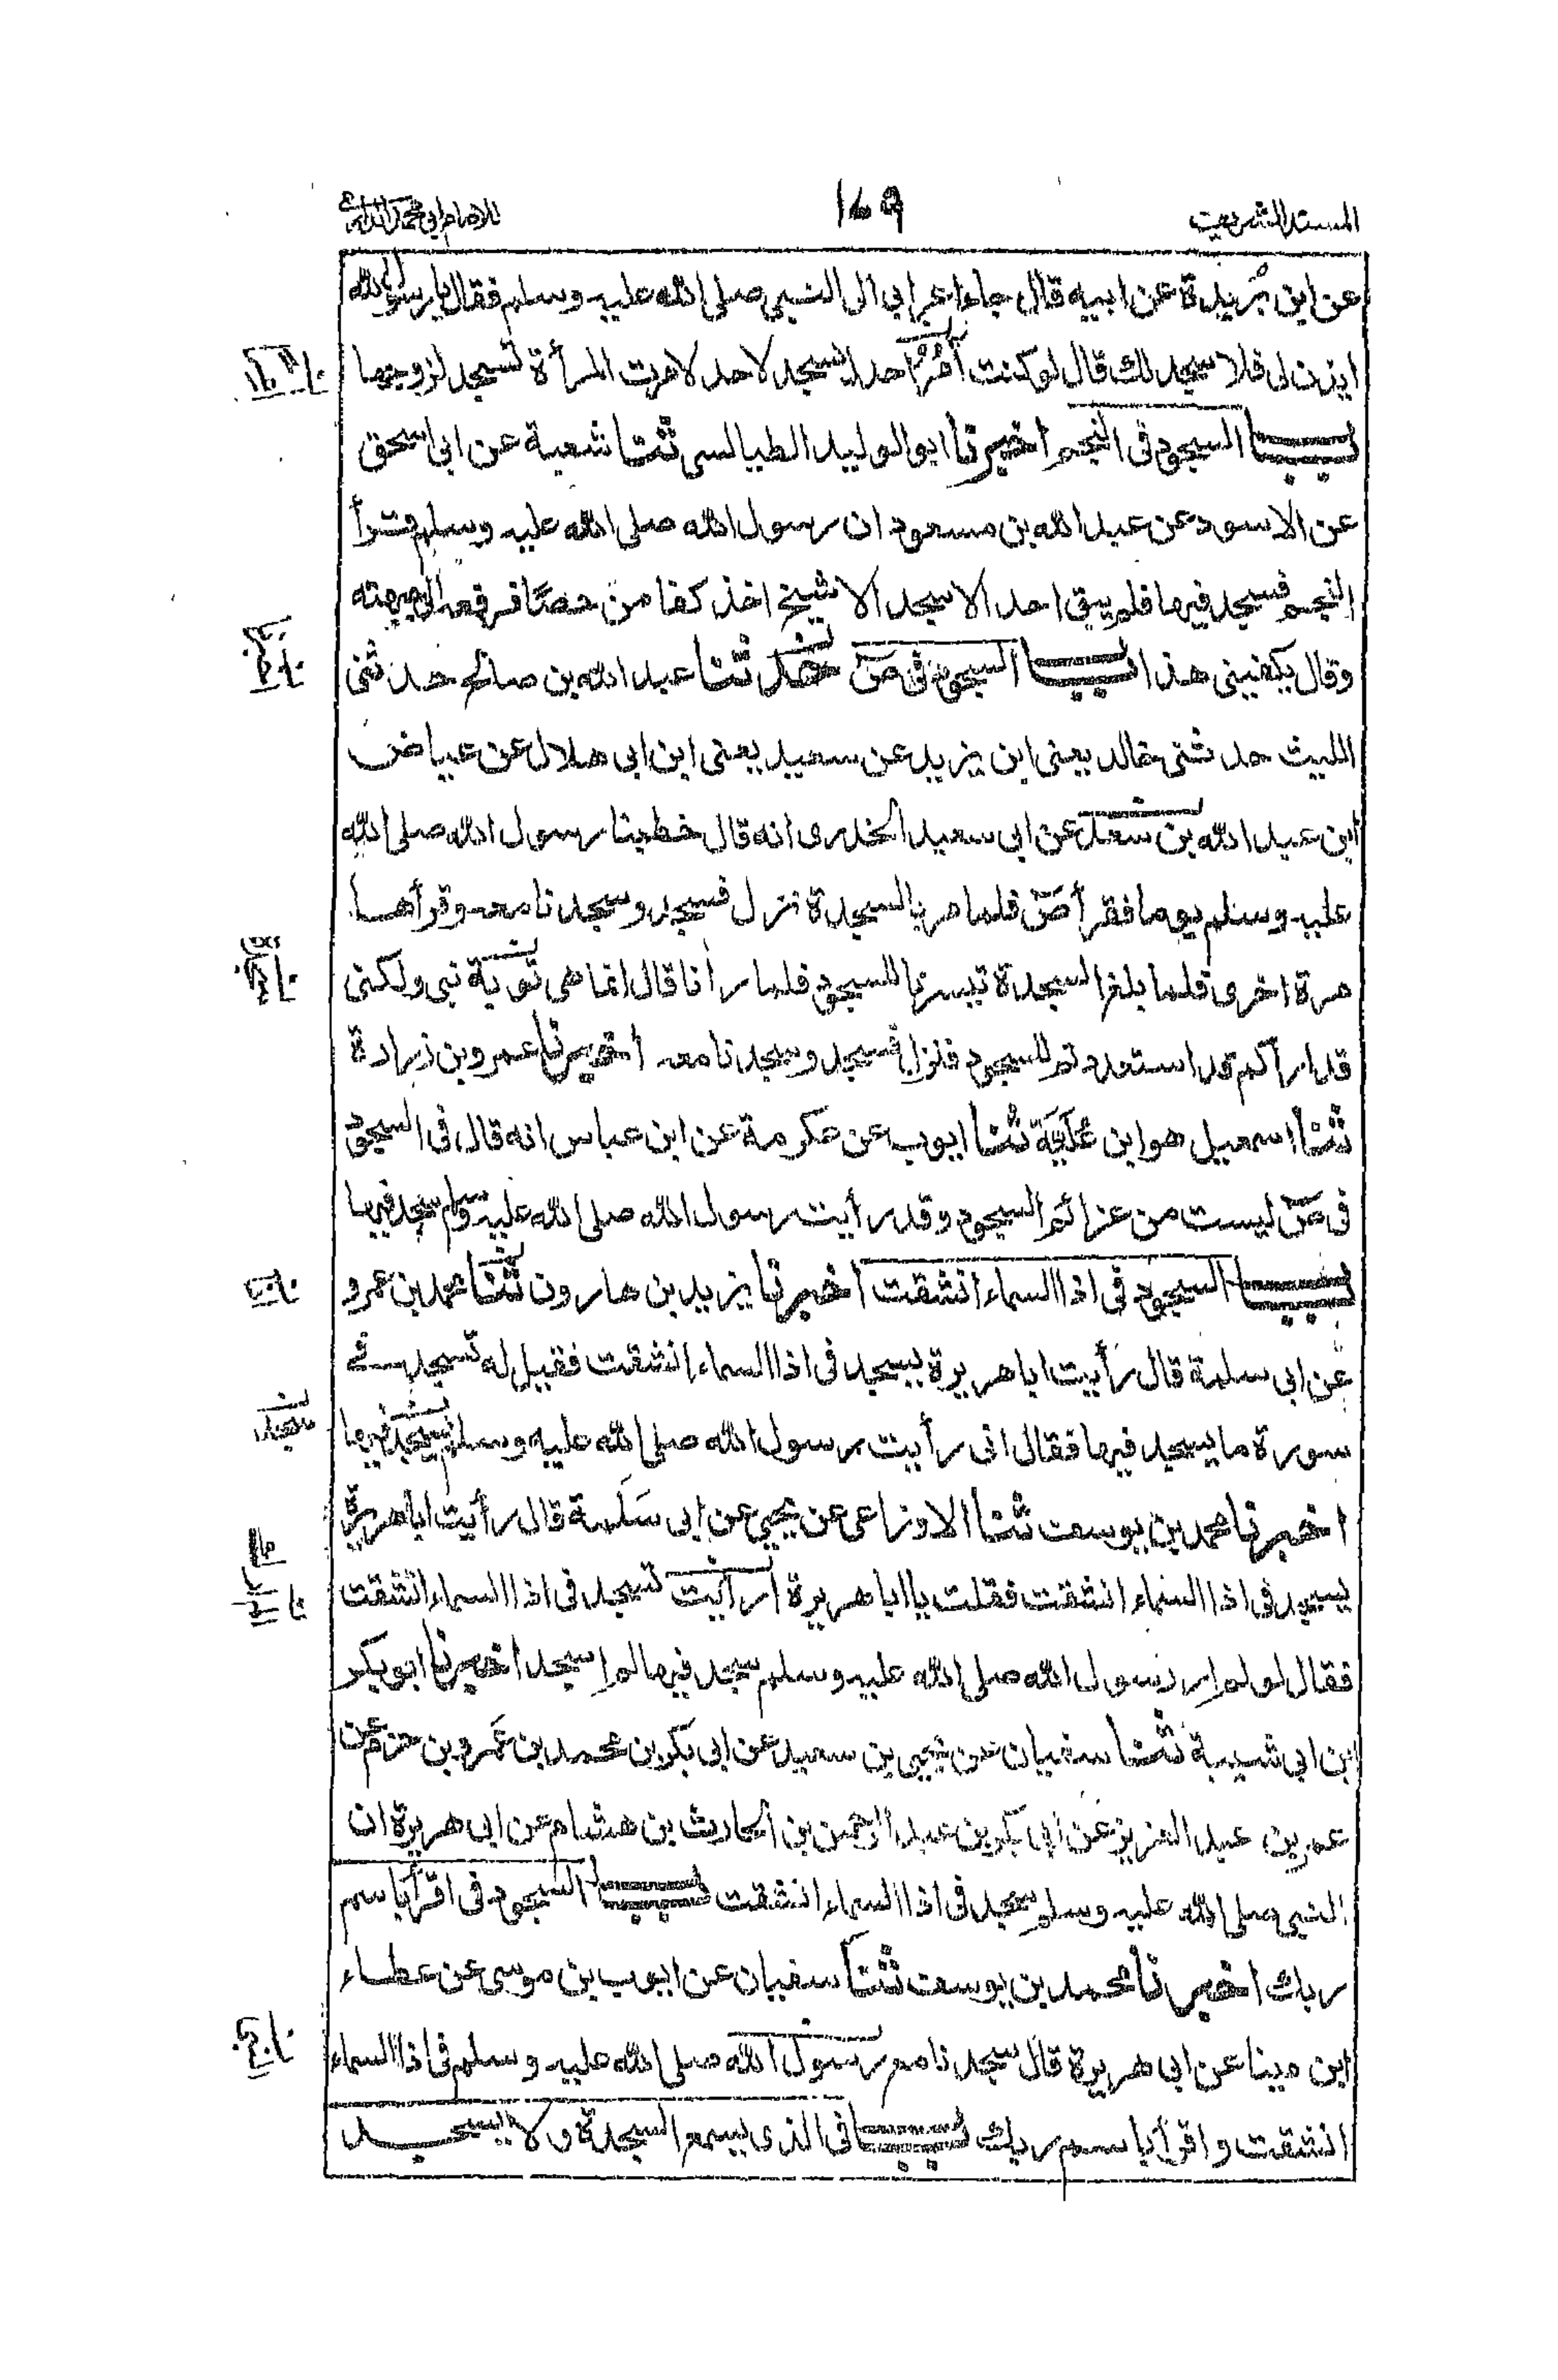 المسند الشريف
١٧٩
للامام ابى محمد
عن ابن بُريدة عن ابيه قال جاء اعرابى الى النبى صلى الله عليه وسلم فقال يا رسول الله
ايذن لى فلاسجد لك قال لو كنت آمُرُ احدا يسجد لاحد لامرت المرأة تسجد لزوجها
باب السجود فى النجم اخبرنا ابو الوليد الطيالسى ثنا شعبة عن ابى اسحق
عن الاسود عن عبد الله بن مسعود ان رسول الله صلى الله عليه وسلم قرأ
النجم فسجد فيها فلم يبق احد الا سجد الا شيخ اخذ كفا من حصًا فرفعه الى جبهته
وقال يكفينى هذا باب السجود فى صۤ حدثنا عبد الله بن صالح حدثنى
الليث حدثنى خالد يعنى ابن يزيد عن سعيد يعنى ابن ابى هلال عن عياض
ابن عبد الله بن سعد عن ابى سعيد الخدرى انه قال خطبنا رسول الله صلى الله
عليه وسلم يوما فقرأ صۤ فلما مر بالسجدة نزل فسجد وسجدنا معه وقرأها
مرة اخرى فلما بلغ السجدة تيسرنا للسجود فلما رأنا قال انما هى توبة نبى ولكنى
قد اراكم قد استعددتم للسجود فنزل فسجد وسجدنا معه اخبرنا عمرو بن زرارة
ثنا اسمعيل هو ابن عُلَيّة ثنا ايوب عن عكرمة عن ابن عباس انه قال فى السجود
فى صۤ ليست من عزائم السجود وقد رأيت رسول الله صلى الله عليه وسلم سجد فيها
باب السجود فى اذا السماء انشقت اخبرنا يزيد بن هارون ثنا محمد بن عمرو
عن ابى سلمة قال رأيت ابا هريرة يسجد فى اذا السماء انشقت فقيل له تسجد فى
سورة ما يسجد فيها فقال انى رأيت رسول الله صلى الله عليه وسلم يسجد فيها
اخبرنا محمد بن يوسف ثنا الاوزاعى عن يحيى عن ابى سَلَمة قال رأيت ابا هريرة
يسجد فى اذا السماء انشقت فقلت يا ابا هريرة ارأيت تسجد فى اذا السماء انشقت
فقال لو لم ار رسول الله صلى الله عليه وسلم سجد فيها لم اسجد اخبرنا ابو بكر
ابن ابى شيبة ثنا سفيان عن يحيى بن سعيد عن ابى بكر بن محمد بن عَمرو بن حزم عن
عمر بن عبد العزيز عن ابى بكر بن عبد الرحمن بن الحارث بن هشام عن ابى هريرة ان
النبى صلى الله عليه وسلم سجد فى اذا السماء انشقت باب السجود فى اقرأ باسم
ربك اخبرنا محمد بن يوسف ثنا سفيان عن ايوب بن موسى عن عطاء
ابن مينا عن ابى هريرة قال سجدنا مع رسول الله صلى الله عليه وسلم فى اذا السماء
انشقت واقرأ باسم ربك باب فى الذى يسمع السجدة ولا يسجد